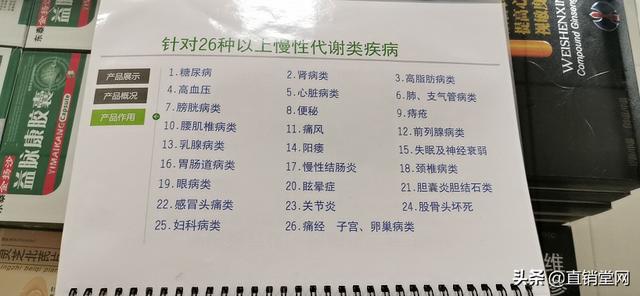 针对26种以上慢性代谢类疾病
产品展示
产品概况
产品作用
1.糖尿病 2.肾病类 3.高脂肪病类
4.高血压 5.心脏病类 6.肺、支气管病类
7.膀胱病类 8.便秘 9.痔疮
10.腰肌椎病类 11.痛风 12.前列腺病类
13.乳腺病类 14.阳痿 15.失眠及神经衰弱
16.胃肠道病类 17.慢性结肠炎 18.颈椎病类
19.眼病类 20.眩晕症 21.胆囊炎胆结石类
22.感冒头痛类 23.关节炎 24.股骨头坏死
25.妇科病类 26.痛经 子宫、卵巢病类
益脉康胶囊
YIMAIKANG Capsule
WEISHENXIN
Compound Ginseng
头条@直销堂网